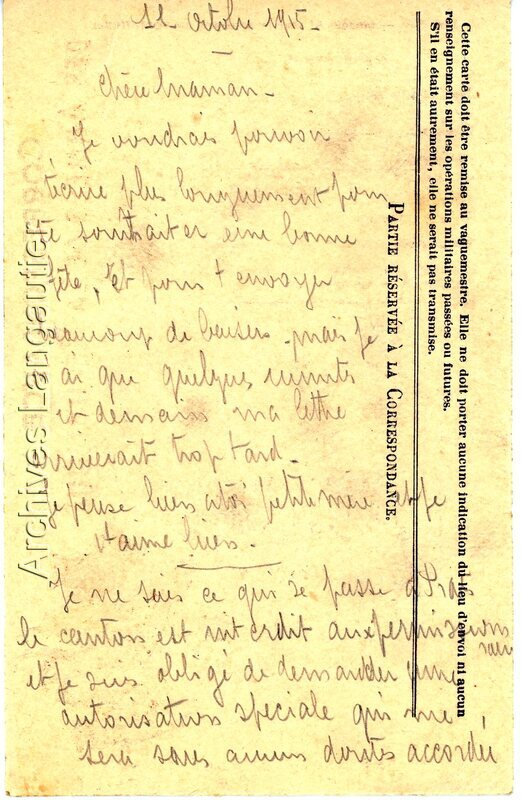 11 Octobre 1915 -
Chère Maman -
Je voudrais pouvoir
t'écrire plus longuement pour
te souhaiter une bonne
fête, et pour t envoyer
beaucoup de baisers mais je
ai que quelques minutes
et demain ma lettre
arriverait trop tard -
Je pense bien à toi petite mère et je
t'aime bien -
Je ne sais ce qui se passe à
le canton est interdit aux permissionnaires
et je suis obligé de demander une
autorisation speciale qui me
sera sans aucun doutes accordée
PARTIE RÉSERVÉE À LA CORRESPONDANCE.
Cette carte doit être remise au vaguemestre. Elle ne doit porter aucune indication du lieu d'envoi ni aucun
renseignement sur les opérations militaires passées ou futures.
S'il en était autrement, elle ne serait pas transmise.
Archives Lansautier